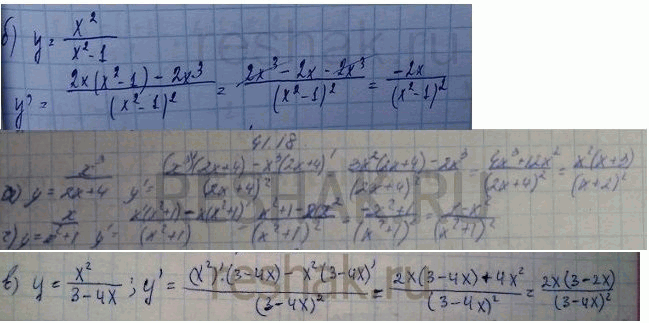 б) y = x² / (x² - 1)
y' = (2x(x² - 1) - 2x³) / (x² - 1)² = (2x³ - 2x - 2x³) / (x² - 1)² = -2x / (x² - 1)²
41.18.
а) y = x³ / (2x+4) y' = ((x³)'(2x+4) - x³(2x+4)') / (2x+4)² = (3x²(2x+4) - 2x³) / (2x+4)² = (4x³+12x²) / (2x+4)² = x²(x+3) / (x+2)²
г) y = x / (x²+1) y' = (x'(x²+1) - x(x²+1)') / (x²+1)² = (x²+1-2x²) / (x²+1)² = (-x²+1) / (x²+1)² = (1-x²) / (x²+1)²
в) y = x² / (3-4x) ; y' = ((x²)'·(3-4x) - x²(3-4x)') / (3-4x)² = (2x(3-4x) + 4x²) / (3-4x)² = 2x(3-2x) / (3-4x)²
reshak.ru
RESHAK.RU
reshak.ru